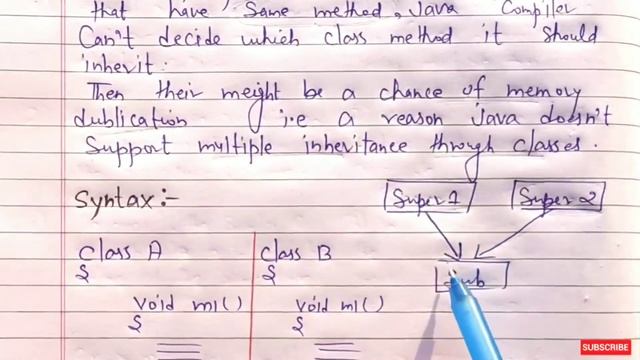 that have same method, Java Compiler
Can't decide which class method it should
inherit.
Then their meight be a chance of memory
dublication i.e a reason Java doesn't
Support multiple inheritance through classes.
Syntax:-
Super 1 Super 2
Sub
class A class B
{ {
void m1() void m1()
{ {
SUBSCRIBE